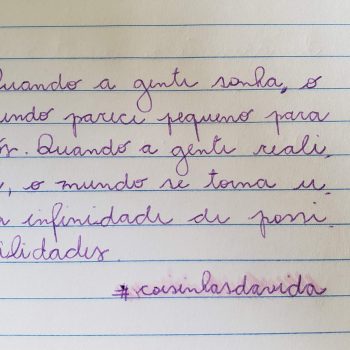 Quando a gente sonha, o
undo parece pequeno para
ós. Quando a gente reali
, o mundo se torna u
a infinidade de possi
ilidades.
#coisinhasdavida